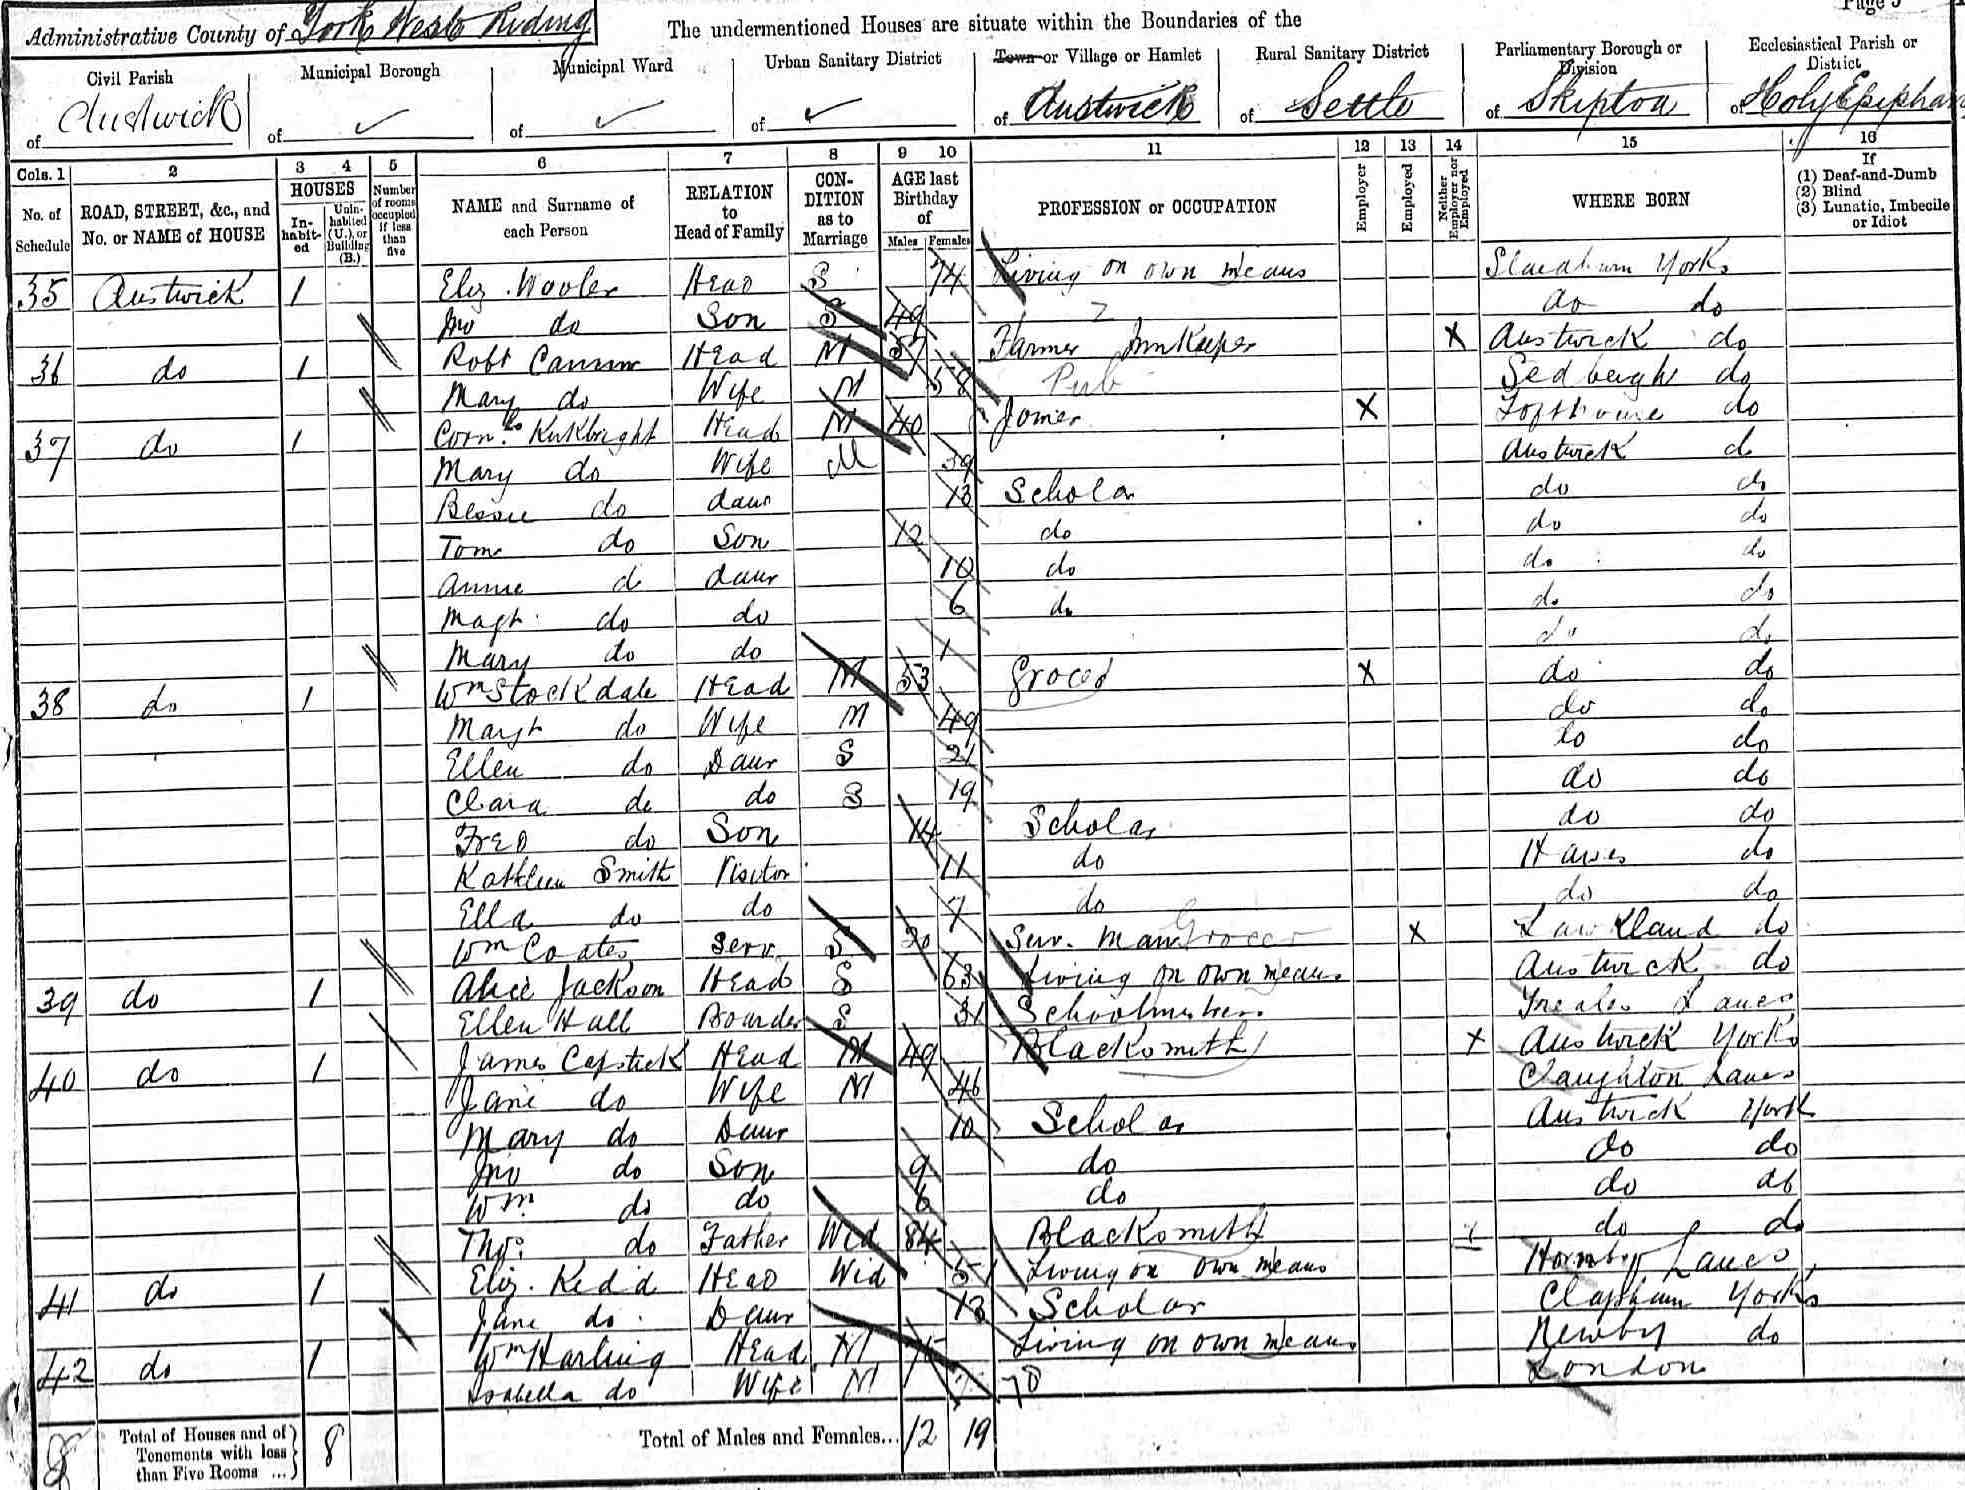 Page 5
Administrative County of York West Riding
The undermentioned Houses are situate within the Boundaries of the
Civil Parish of Austwick
Municipal Borough of ✓
Municipal Ward of ✓
Urban Sanitary District of ✓
Town or Village or Hamlet of Austwick
Rural Sanitary District of Settle
Parliamentary Borough or Division of Skipton
Ecclesiastical Parish or District of Holy Epiphany
Cols. 1 2 3 4 5 6 7 8 9 10 11 12 13 14 15 16
No. of Schedule
ROAD, STREET, &c., and No. or NAME of HOUSE
HOUSES
Inhabited
Uninhabited (U.), or Building (B.)
Number of rooms occupied if less than five
NAME and Surname of each Person
RELATION to Head of Family
CONDITION as to Marriage
AGE last Birthday of
Males Females
PROFESSION or OCCUPATION
Employer
Employed
Neither Employer nor Employed
WHERE BORN
If
(1) Deaf-and-Dumb
(2) Blind
(3) Lunatic, Imbecile or Idiot
35 Austwick 1 Eliz. Head S 74 Living on own means Yorks
Jno do Son S 49 do do
36 do 1 Robt Head M 57 Farmer Innkeeper X Austwick do
Mary do Wife M 58 Pub Sedbergh do
37 do 1 Kirkbright Head M 40 Joiner X Lofthouse do
Mary do Wife M 39 Austwick do
Bessie do daur 13 Scholar do do
Tom do Son 12 do do do
Annie do daur 10 do do do
Magt. do do 6 do do do
Mary do do 1 do do
38 do 1 Wm Stockdale Head M 53 Grocer X do do
Margt do Wife M 49 do do
Ellen do Daur S 21 do do
Clara do do S 19 do do
Fred do Son 14 Scholar do do
Kathleen Smith Visitor 11 do Hawes do
Ella do do 7 do do do
Wm Coates Serv. S 20 Serv. Man Grocer X Lawkland do
39 do 1 Alice Jackson Head S 63 Living on own means Austwick do
Ellen Hall Boarder S 31 Schoolmistress Lancs
40 do 1 James Capstick Head M 49 Blacksmith X Austwick Yorks
Jane do Wife M 46 Claughton Lancs
Mary do Daur 10 Scholar Austwick York
Jno do Son 9 do do do
Wm. do do 6 do do do
Thos. do Father Wid 84 Blacksmith X do do
41 do 1 Eliz. Kidd Head Wid 51 Living on own means Hornby Lancs
Jane do Daur 13 Scholar Clapham Yorks
42 do 1 Wm Harling Head M 75 Living on own means Newby do
Isabella do Wife M 78 London
8 Total of Houses and of Tenements with less than Five Rooms ... 8
Total of Males and Females... 12 19